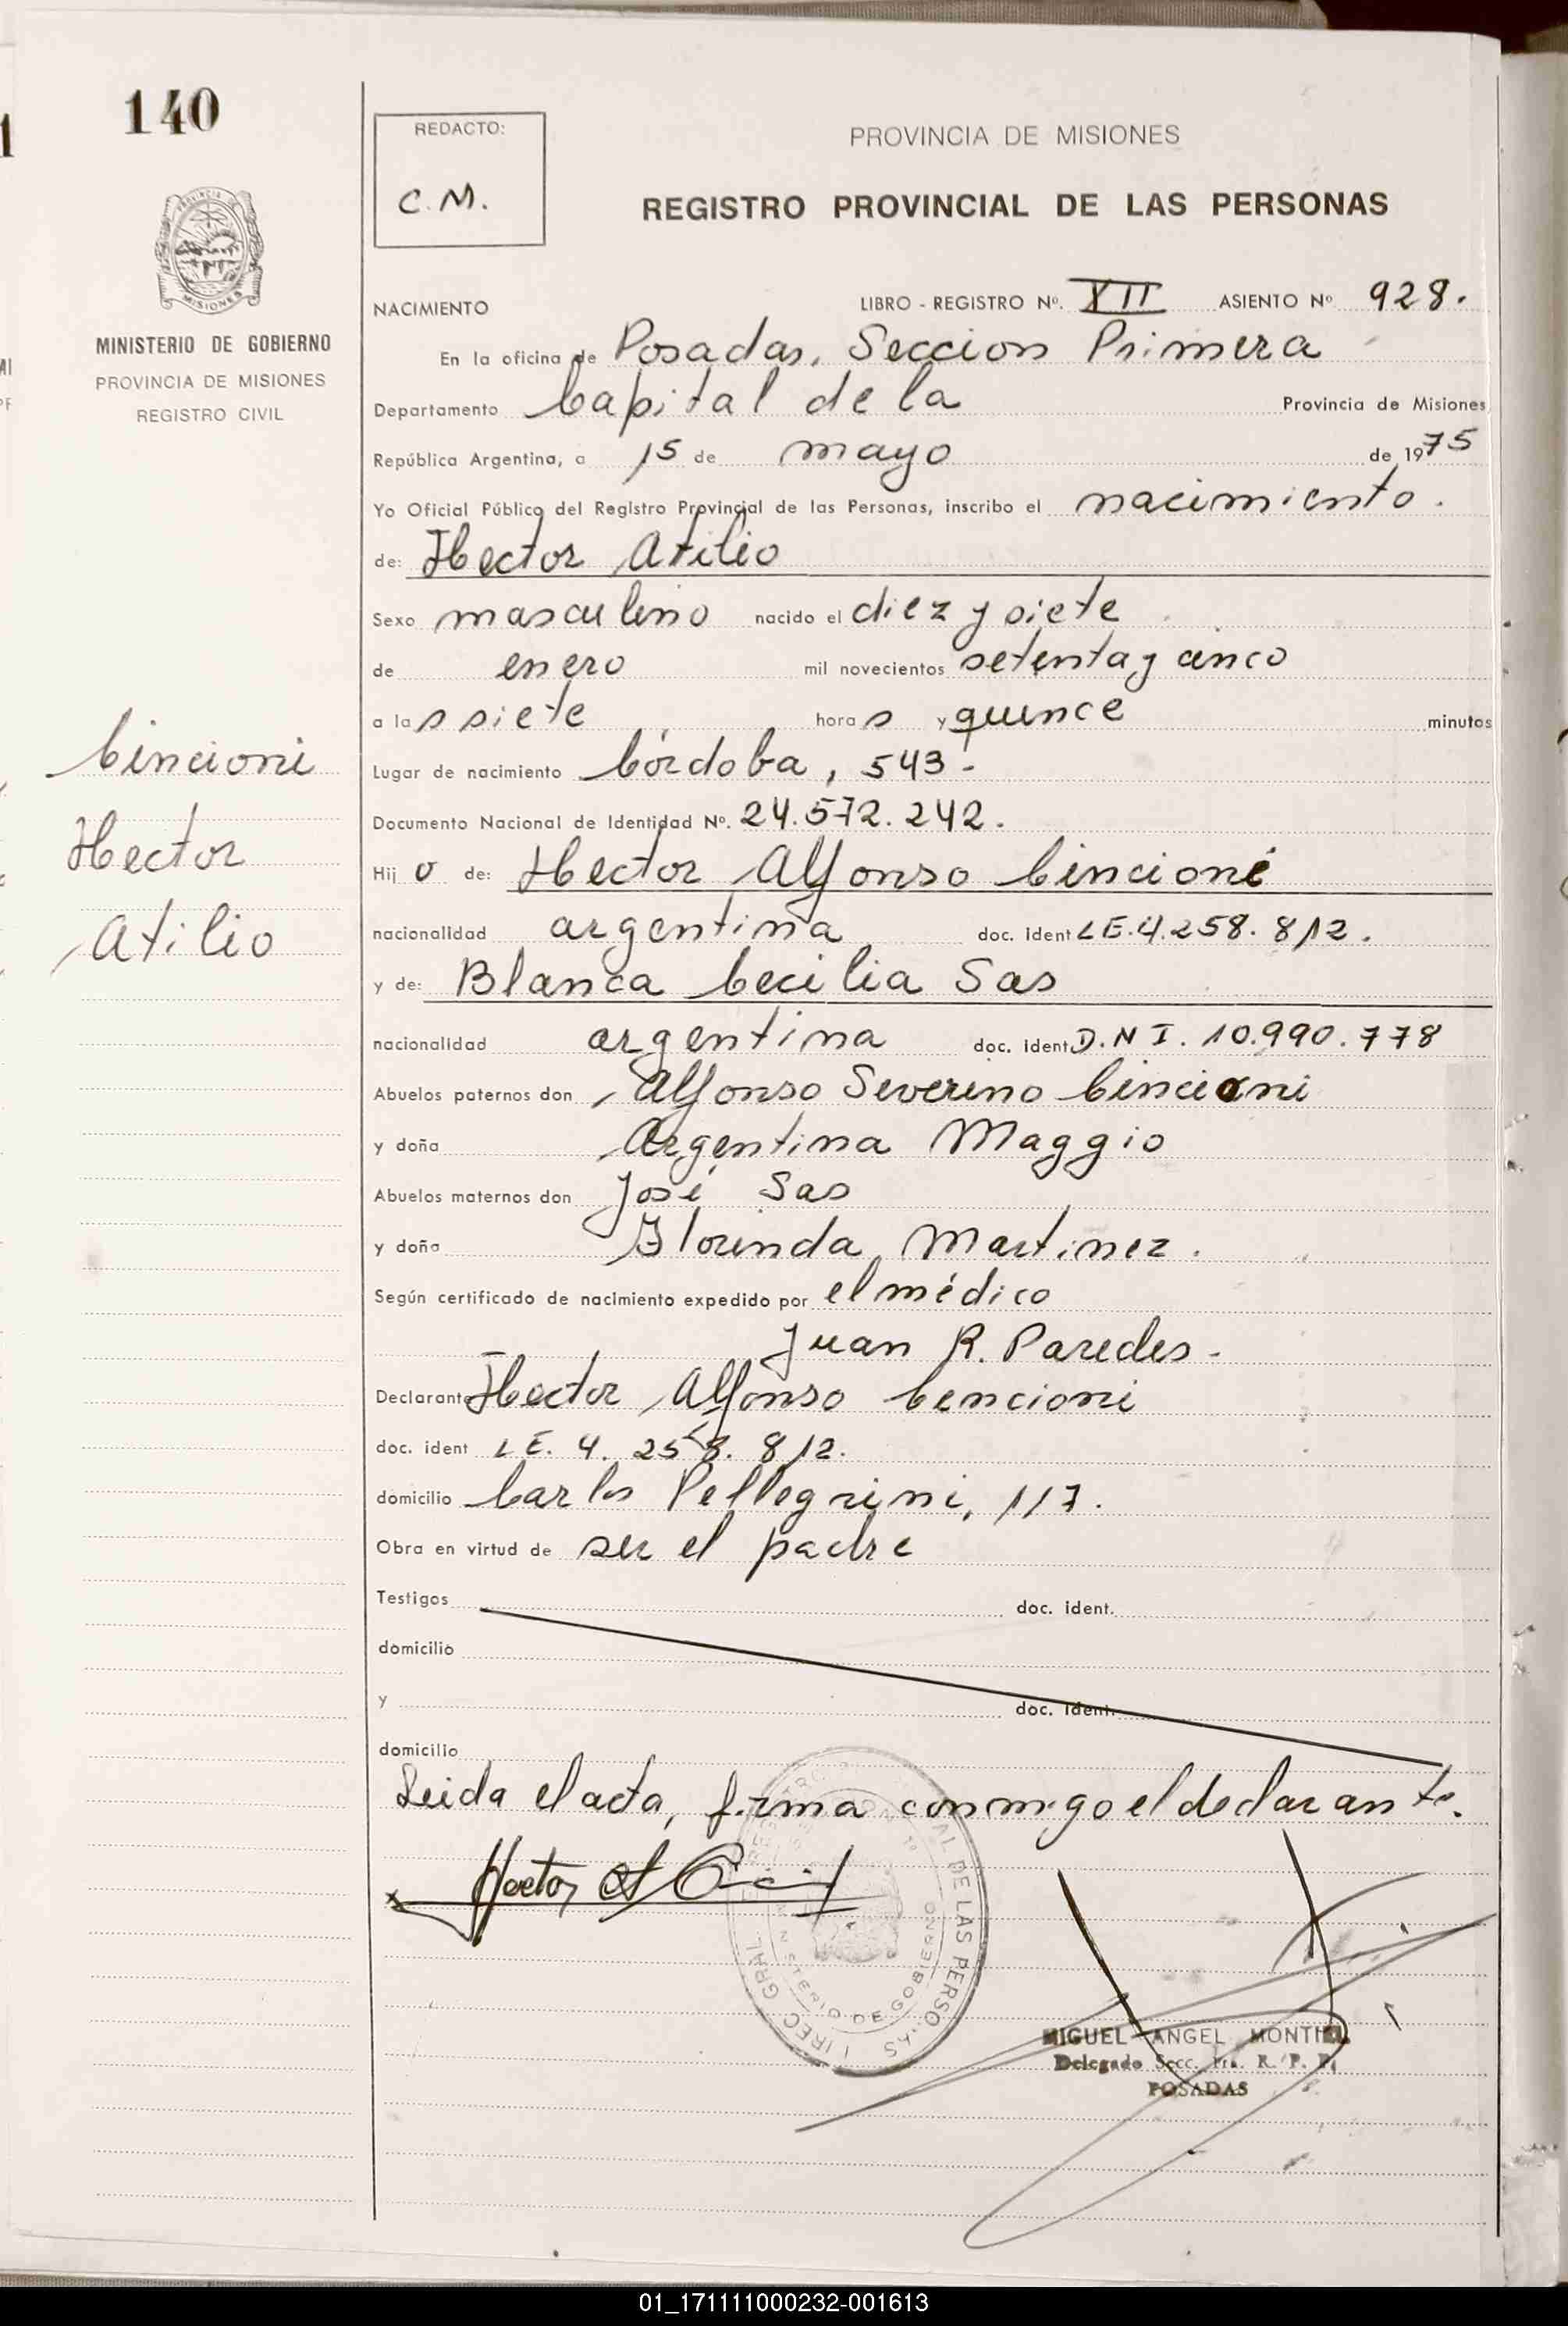 140
REDACTO:
C. M.
PROVINCIA DE MISIONES
REGISTRO PROVINCIAL DE LAS PERSONAS
MISIONES
MINISTERIO DE GOBIERNO
PROVINCIA DE MISIONES
REGISTRO CIVIL
NACIMIENTO LIBRO - REGISTRO Nº. XII ASIENTO Nº 928.
En la oficina de Posadas, Seccion Primera
Departamento Capital de la Provincia de Misiones
República Argentina, a 15 de mayo de 1975
Yo Oficial Público del Registro Provincial de las Personas, inscribo el nacimiento.
de: Hector Atilio
Sexo masculino nacido el diez y siete
de enero mil novecientos setenta y cinco
a las siete horas y quince minutos
Lugar de nacimiento Córdoba, 543-
Documento Nacional de Identidad Nº. 24.572.242.
Hijo de: Hector Alfonso Cincioni
nacionalidad argentina doc. ident LE. 4.258.812.
y de: Blanca Cecilia Sas
nacionalidad argentina doc. ident D.N I. 10.990.778
Abuelos paternos don Alfonso Severino Cincioni
y doña Argentina Maggio
Abuelos maternos don José Sas
y doña Florinda Martinez.
Según certificado de nacimiento expedido por el médico
Juan R. Paredes-
Declarante Hector Alfonso Cencioni
doc. ident LE. 4. 258. 812.
domicilio Carlos Pellegrini, 117.
Obra en virtud de ser el padre
Testigos doc. ident.
domicilio
y doc. ident.
domicilio
Leida el acta, firma conmigo el declarante.
Cincioni
Hector
Atilio
Hector A
DE LAS PERSONAS
MINISTERIO DE GOBIERNO
MIGUEL ANGEL MONTIEL
Delegado Secc. 1ra. R. P. P.
POSADAS
01_171111000232-001613